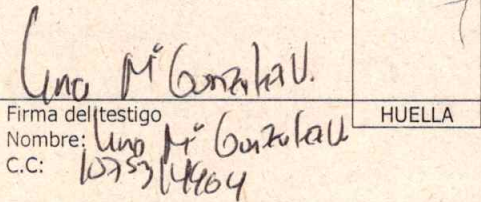 Lina Mª Gonzalez V.
Firma del testigo
HUELLA
Nombre: Lina Mª Gonzalez V.
C.C: